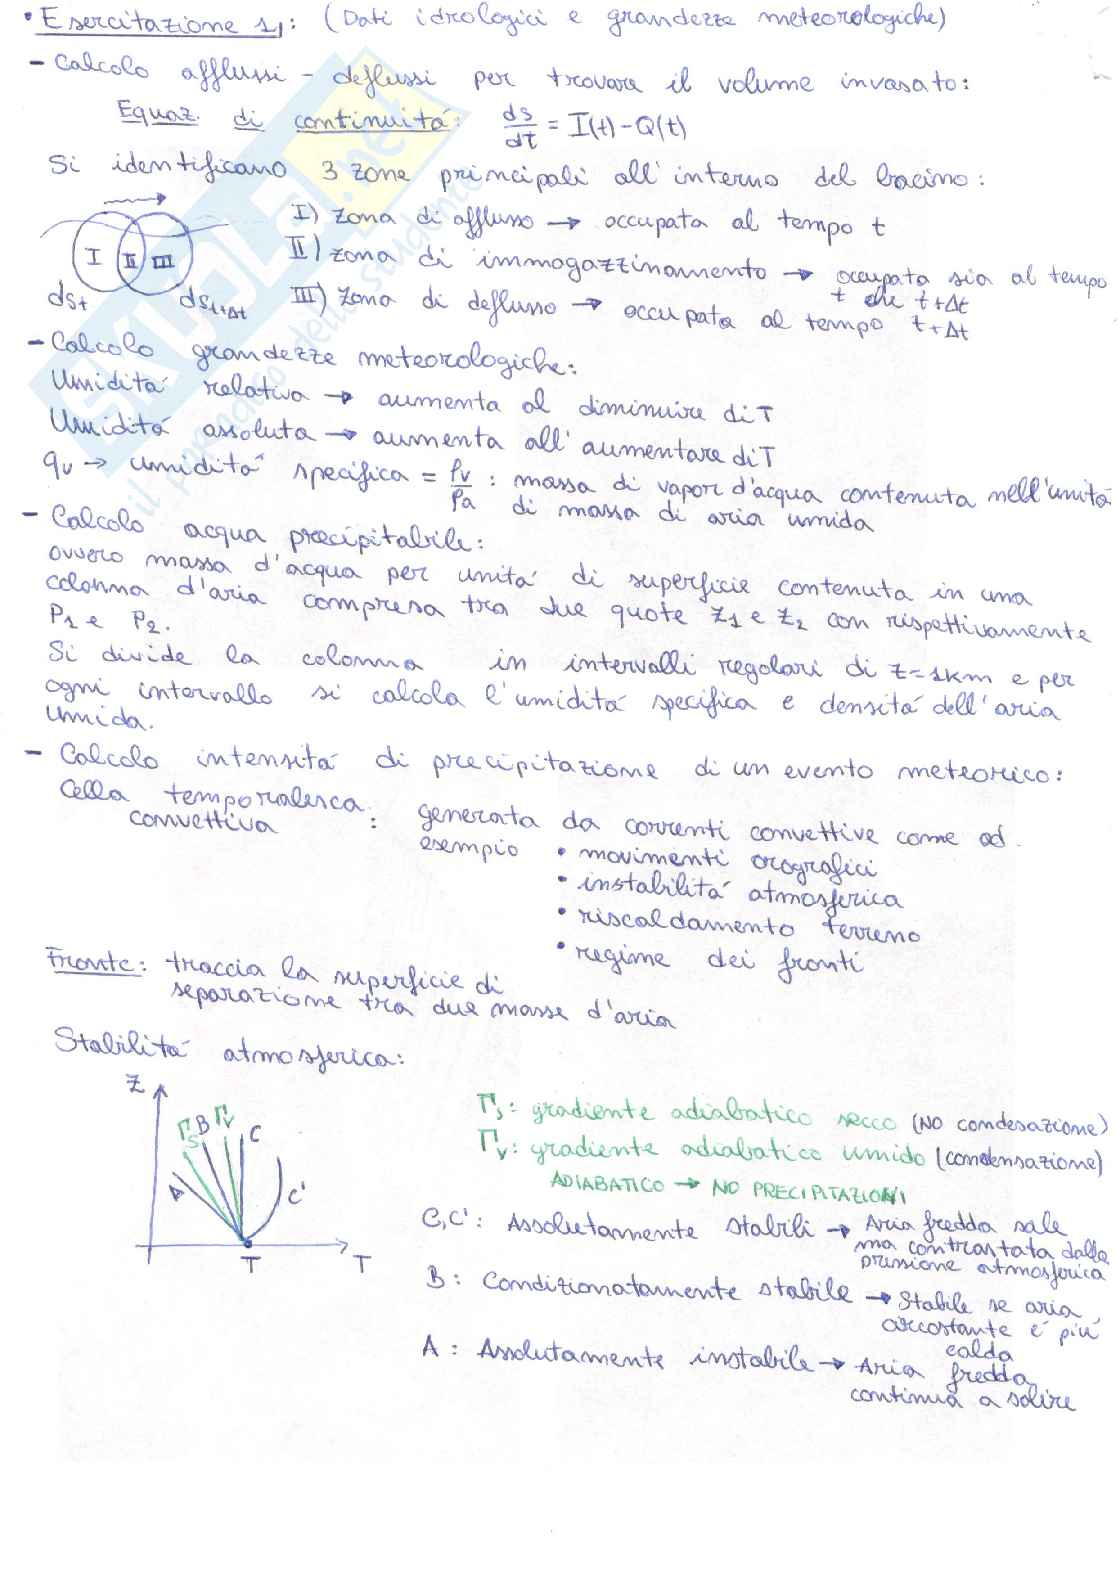 • Esercitazione 1: (Dati idrologici e grandezze meteorologiche)
- Calcolo afflussi - deflussi per trovare il volume invasato:
Equaz. di continuitá: ds/dt = I(t) - Q(t)
Si identificano 3 zone principali all'interno del bacino:
I) zona di afflusso → occupata al tempo t
II) zona di immagazzinamento → occupata sia al tempo
t che t+Δt
III) zona di deflusso → occupata al tempo t+Δt
I II III
dSt dSt+Δt
- Calcolo grandezze meteorologiche:
Umiditá relativa → aumenta al diminuire di T
Umiditá assoluta → aumenta all'aumentare di T
qv → umiditá specifica = ρv/ρa : massa di vapor d'acqua contenuta nell'unitá
di massa di aria umida
- Calcolo acqua precipitabile:
ovvero massa d'acqua per unitá di superficie contenuta in una
colonna d'aria compresa tra due quote z1 e z2 con rispettivamente
P1 e P2.
Si divide la colonna in intervalli regolari di z=1km e per
ogni intervallo si calcola l'umiditá specifica e densitá dell'aria
umida.
- Calcolo intensitá di precipitazione di un evento meteorico:
Cella temporalesca
convettiva : generata da correnti convettive come ad
esempio • movimenti orografici
• instabilitá atmosferica
• riscaldamento terreno
• regime dei fronti
Fronte: traccia la superficie di
separazione tra due masse d'aria
Stabilitá atmosferica:
Z
A Γs B Γv C C'
T T
Γs: gradiente adiabatico secco (NO condesazione)
Γv: gradiente adiabatico umido (condensazione)
ADIABATICO → NO PRECIPITAZIONI
C,C': Assolutamente stabili → Aria fredda sale
ma contrastata dalla
pressione atmosferica
B: Condizionatamente stabile → Stabile se aria
circostante é piú
calda
A: Assolutamente instabile → Aria fredda
continua a salire
SKUOLA.net
il paradiso dello studente